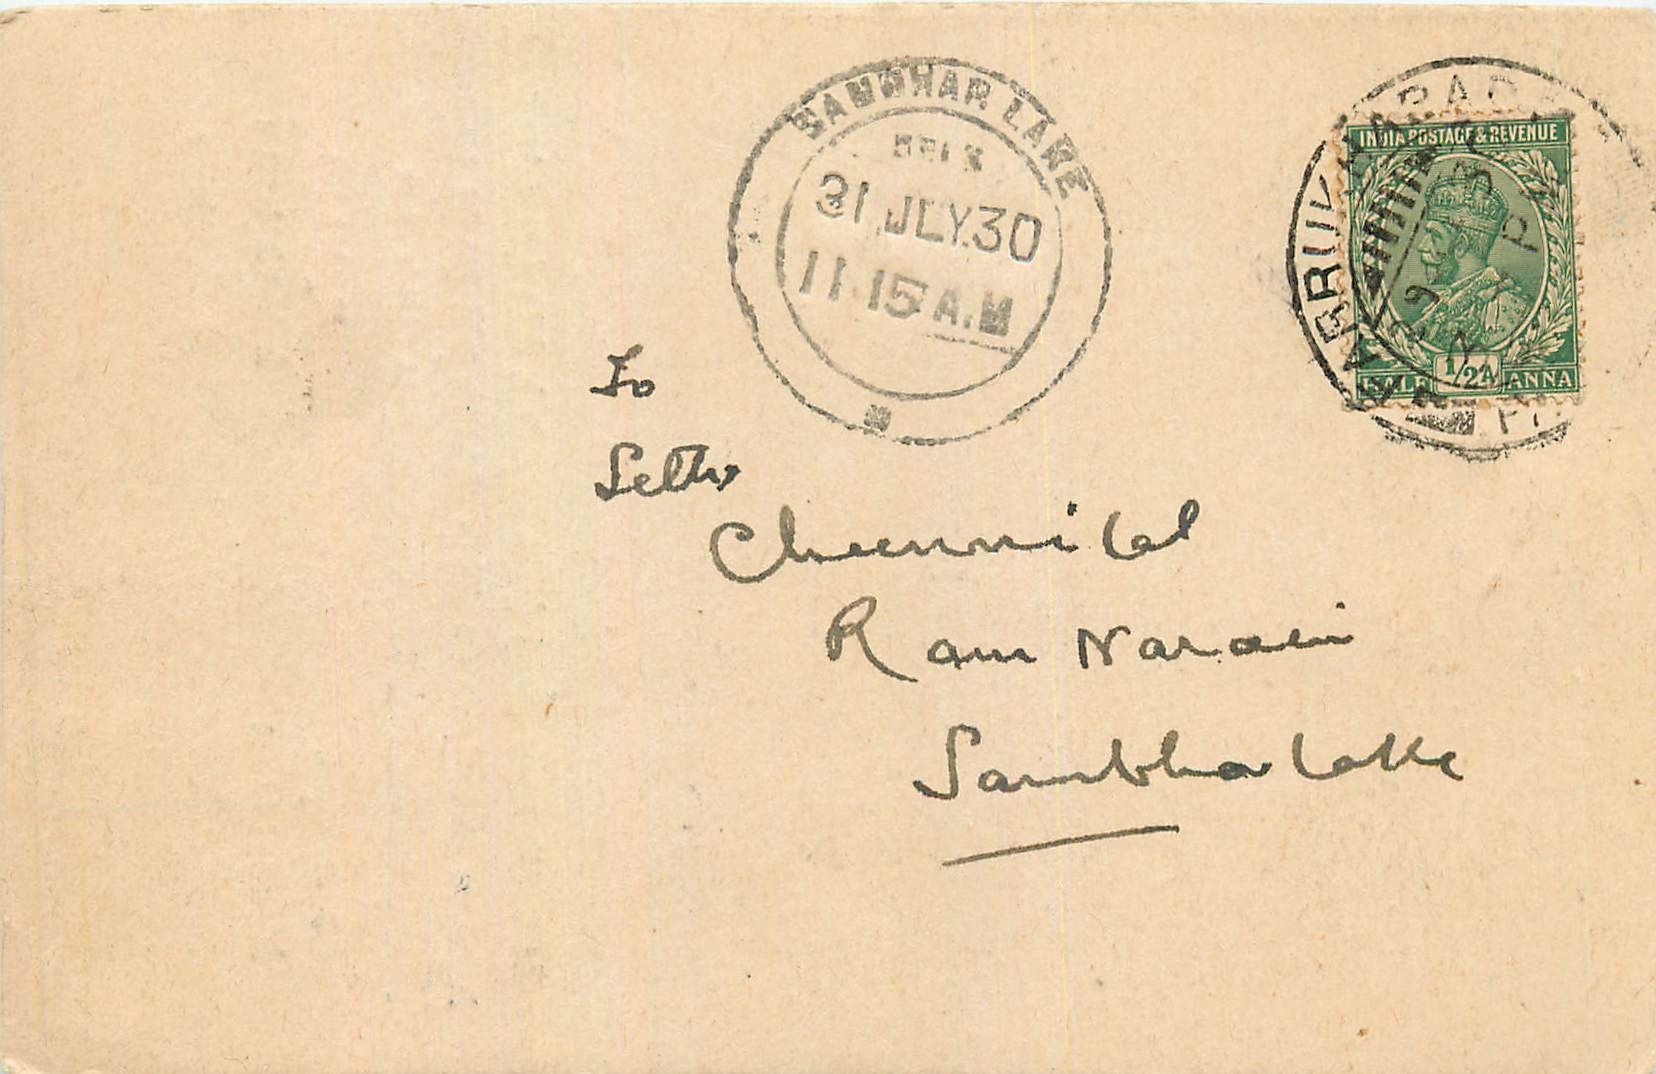 SAMBHAR LAKE
31 JLY.30
11 15 A.M
INDIA POSTAGE & REVENUE
HALF 1/2A ANNA
To
Seth
Chunnilal
Ram Narain
Sambha Lake